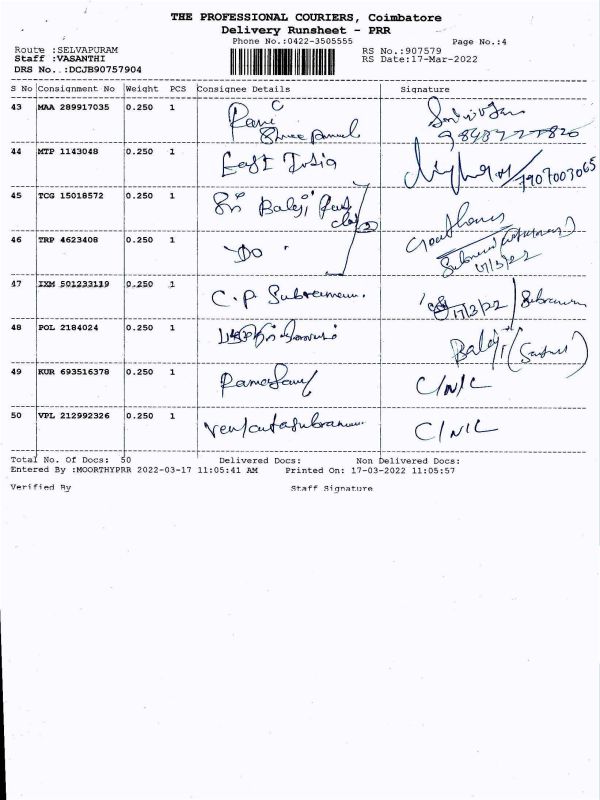 THE PROFESSIONAL COURIERS, Coimbatore
Delivery Runsheet - PRR
Phone No.:0422-3505555
Page No.:4
Route :SELVAPURAM
RS No.:907579
Staff :VASANTHI
RS Date:17-Mar-2022
DRS No..:DCJB90757904
S No Consignment No Weight PCS Consignee Details Signature
43 MAA 289917035 0.250 1
9843777820
44 MTP 1143048 0.250 1 East India
7907003065
45 TCG 15018572 0.250 1 Sri Balaji
46 TRP 4623408 0.250 1 Do
17/3/22
47 IXM 501233119 0.250 1 C.P. Subramani 17/3/22
48 POL 2184024 0.250 1 Balaji
49 KUR 693516378 0.250 1 C/N/C
50 VPL 212992326 0.250 1 C/N/C
Total No. Of Docs: 50 Delivered Docs: Non Delivered Docs:
Entered By :MOORTHYPRR 2022-03-17 11:05:41 AM Printed On: 17-03-2022 11:05:57
Verified By Staff Signature